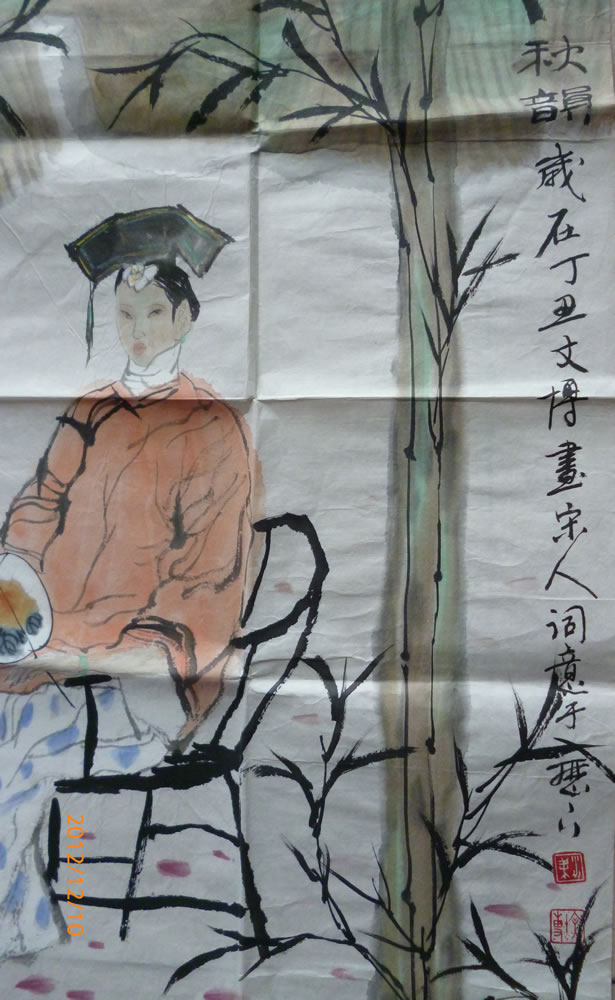 秋韻 歲在丁丑文博畫宋人詞意于歷下
2012/12/10